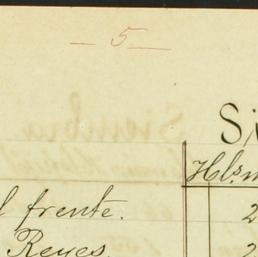 — 5 —
Si
Hls.
l frente. 2
Reyes. 2